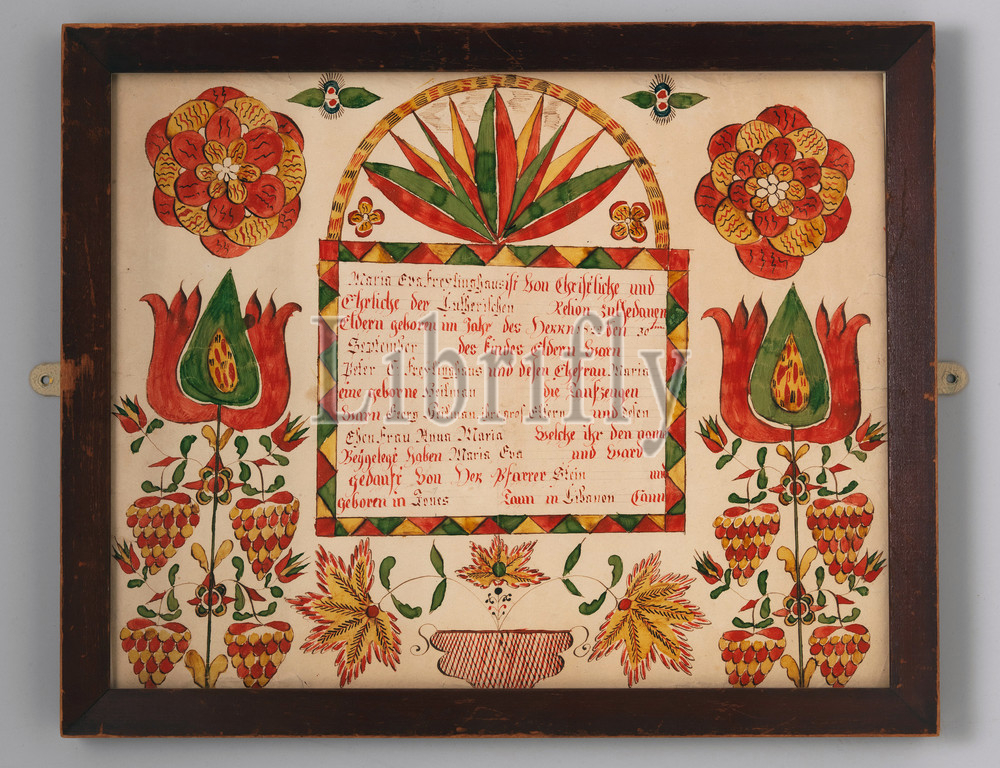 Maria Eva Freylinghaus ist Von Christliche und
Ehrliche der Lutherischen Relion zuHedanen
Eldern geboren im Jahr des Herrn den 20
September des kindes Eldern Waren
Peter C. Freylinghaus und desen Ehefrau Maria
eine geborne Heilman die Taufzeugen
Warn Georg Heilman, ihre gros Eldern und desen
Ehen Frau Anna Maria Welche ihr den nom
Beygelegt haben Maria Eva und Ward
gedauft Von Der Pfarrer Stein und
geboren in Taun in Libanon Caun
Librifly